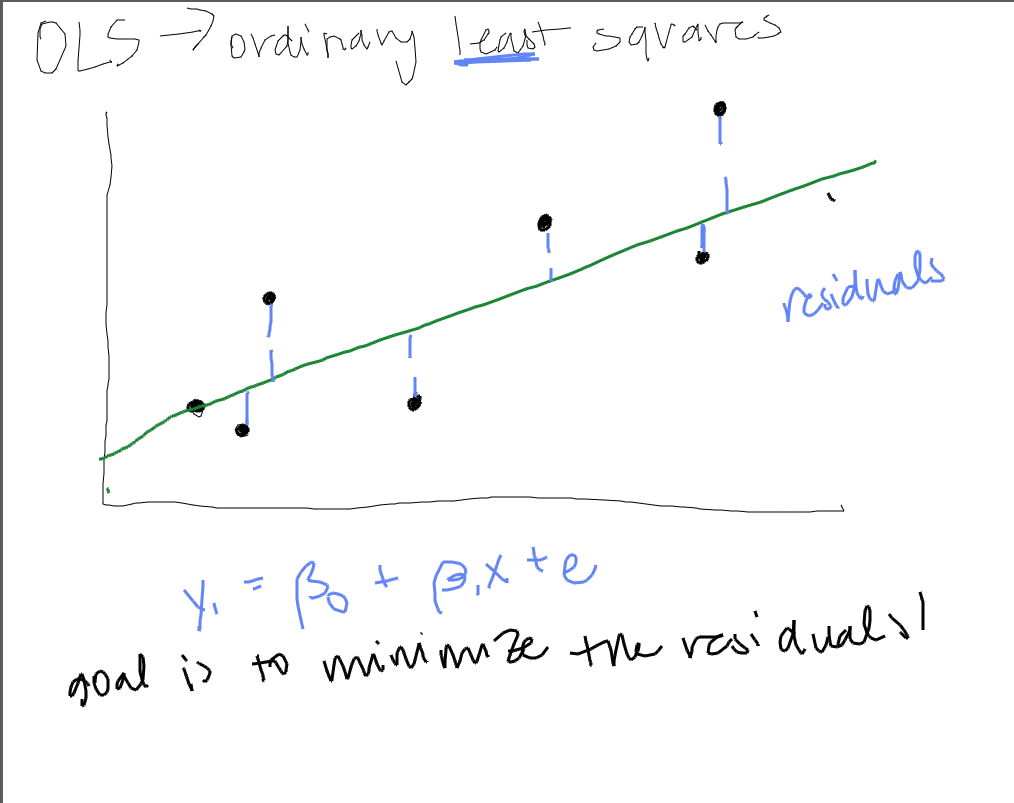 OLS → ordinary least squares
residuals
y₁ = β₀ + β₁x + e
goal is to minimize the residuals!